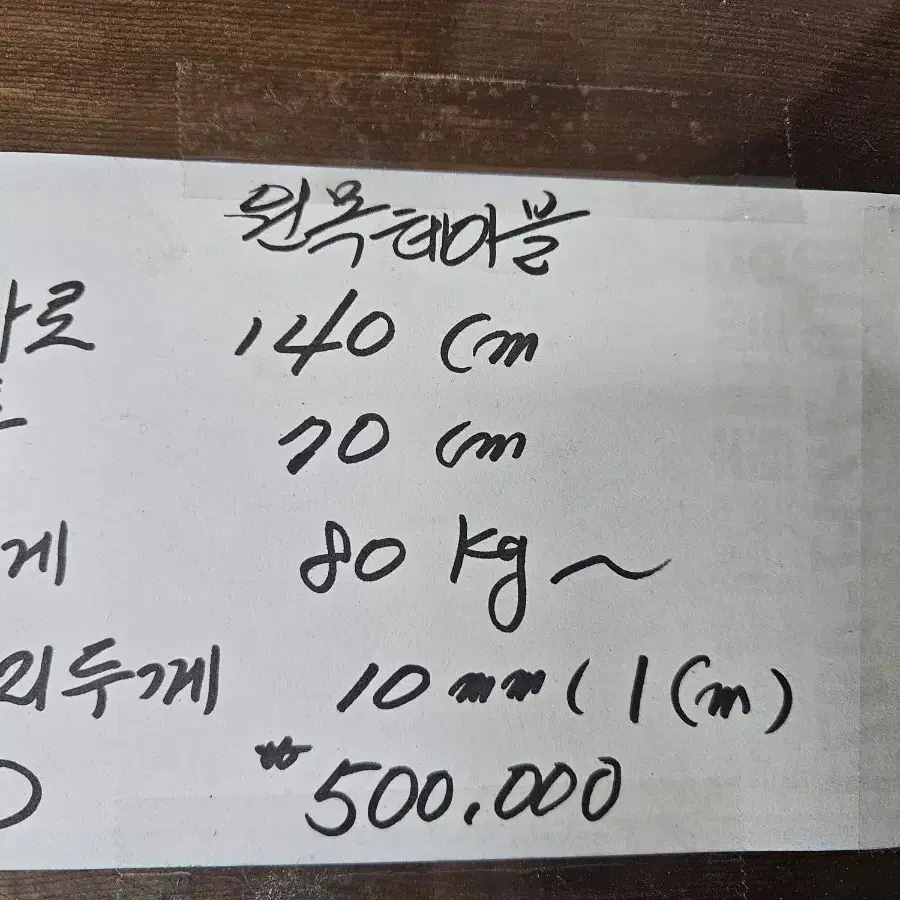 원목테이블
로 140 Cm
70 Cm
게 80 Kg~
리두께 10mm(1Cm)
₩500,000